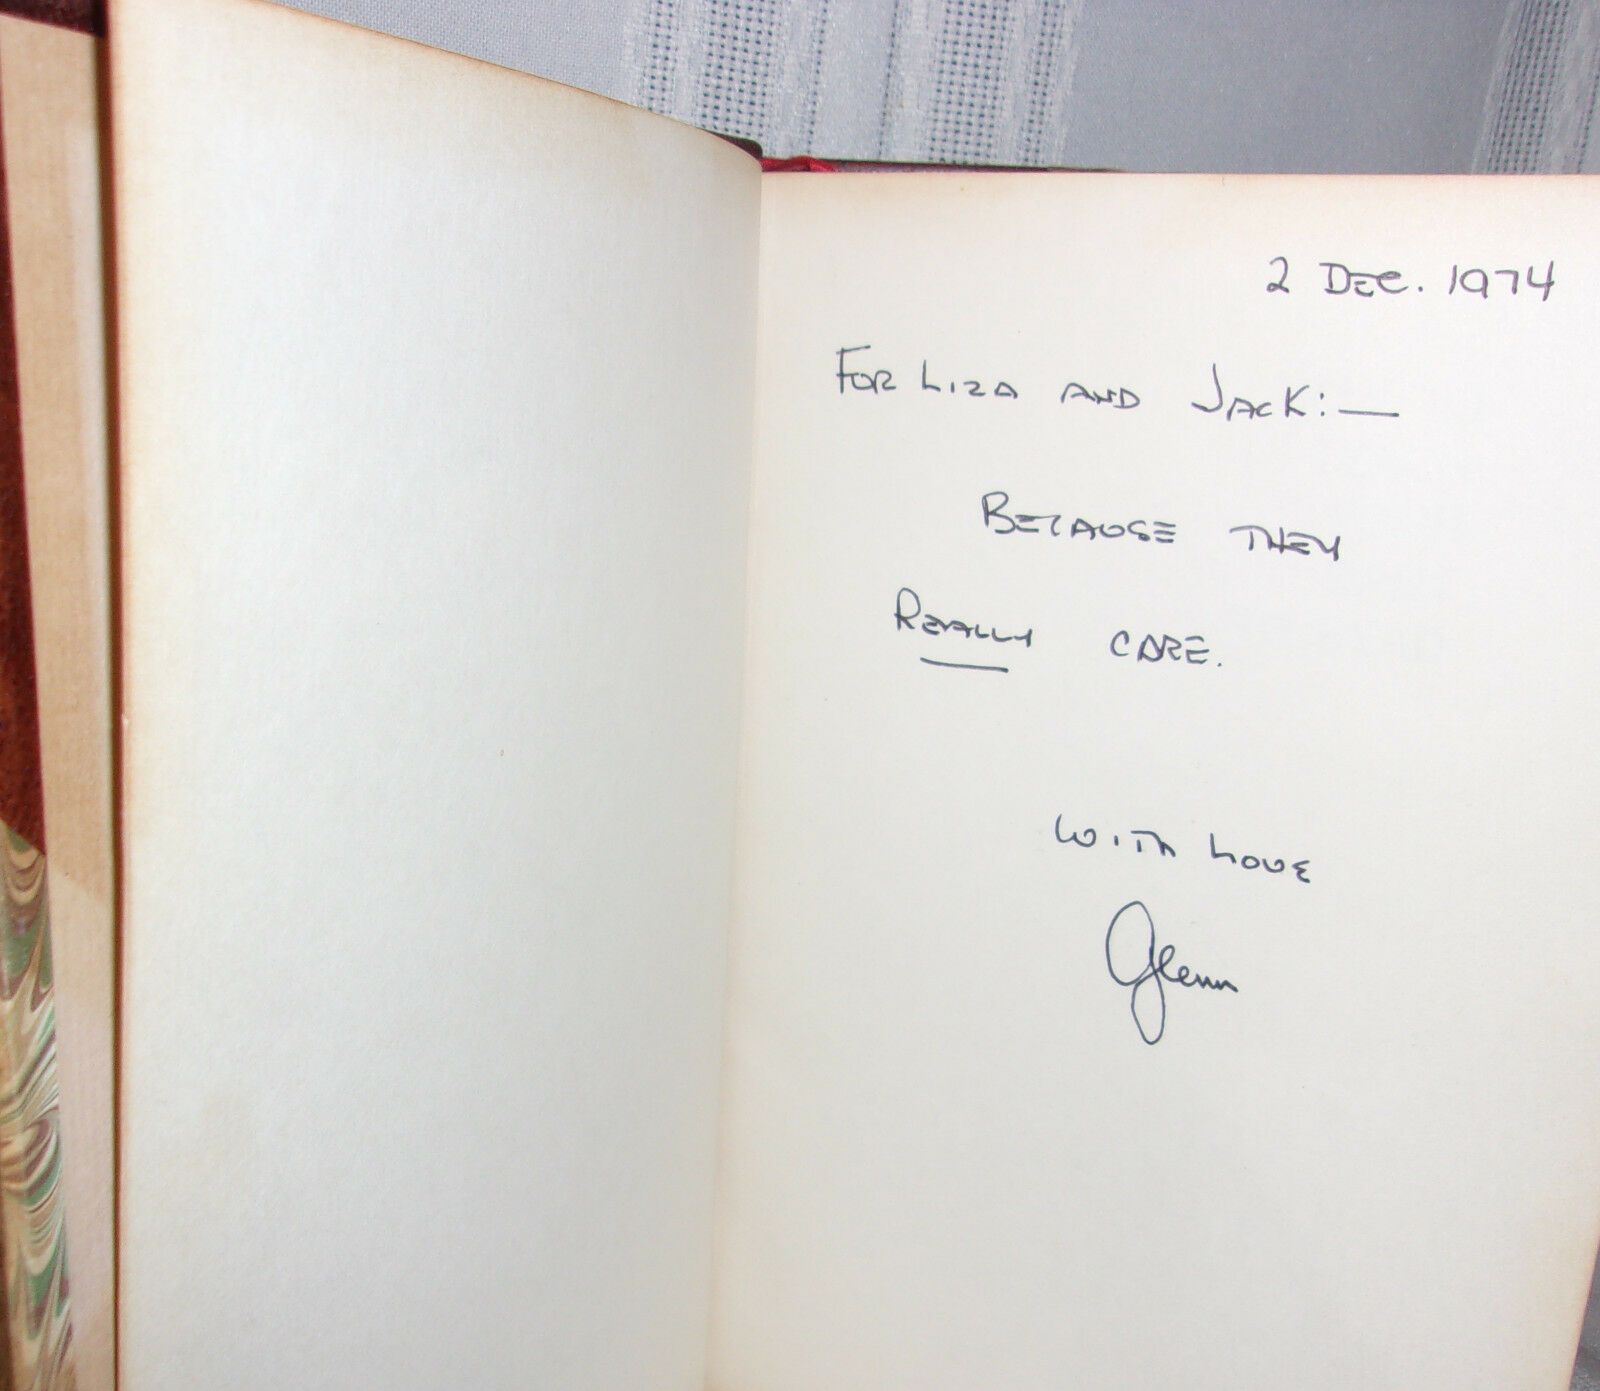 2 DEC. 1974
FOR LIZA AND JACK:—
BECAUSE THEY
REALLY CARE.
WITH LOVE
Glenn